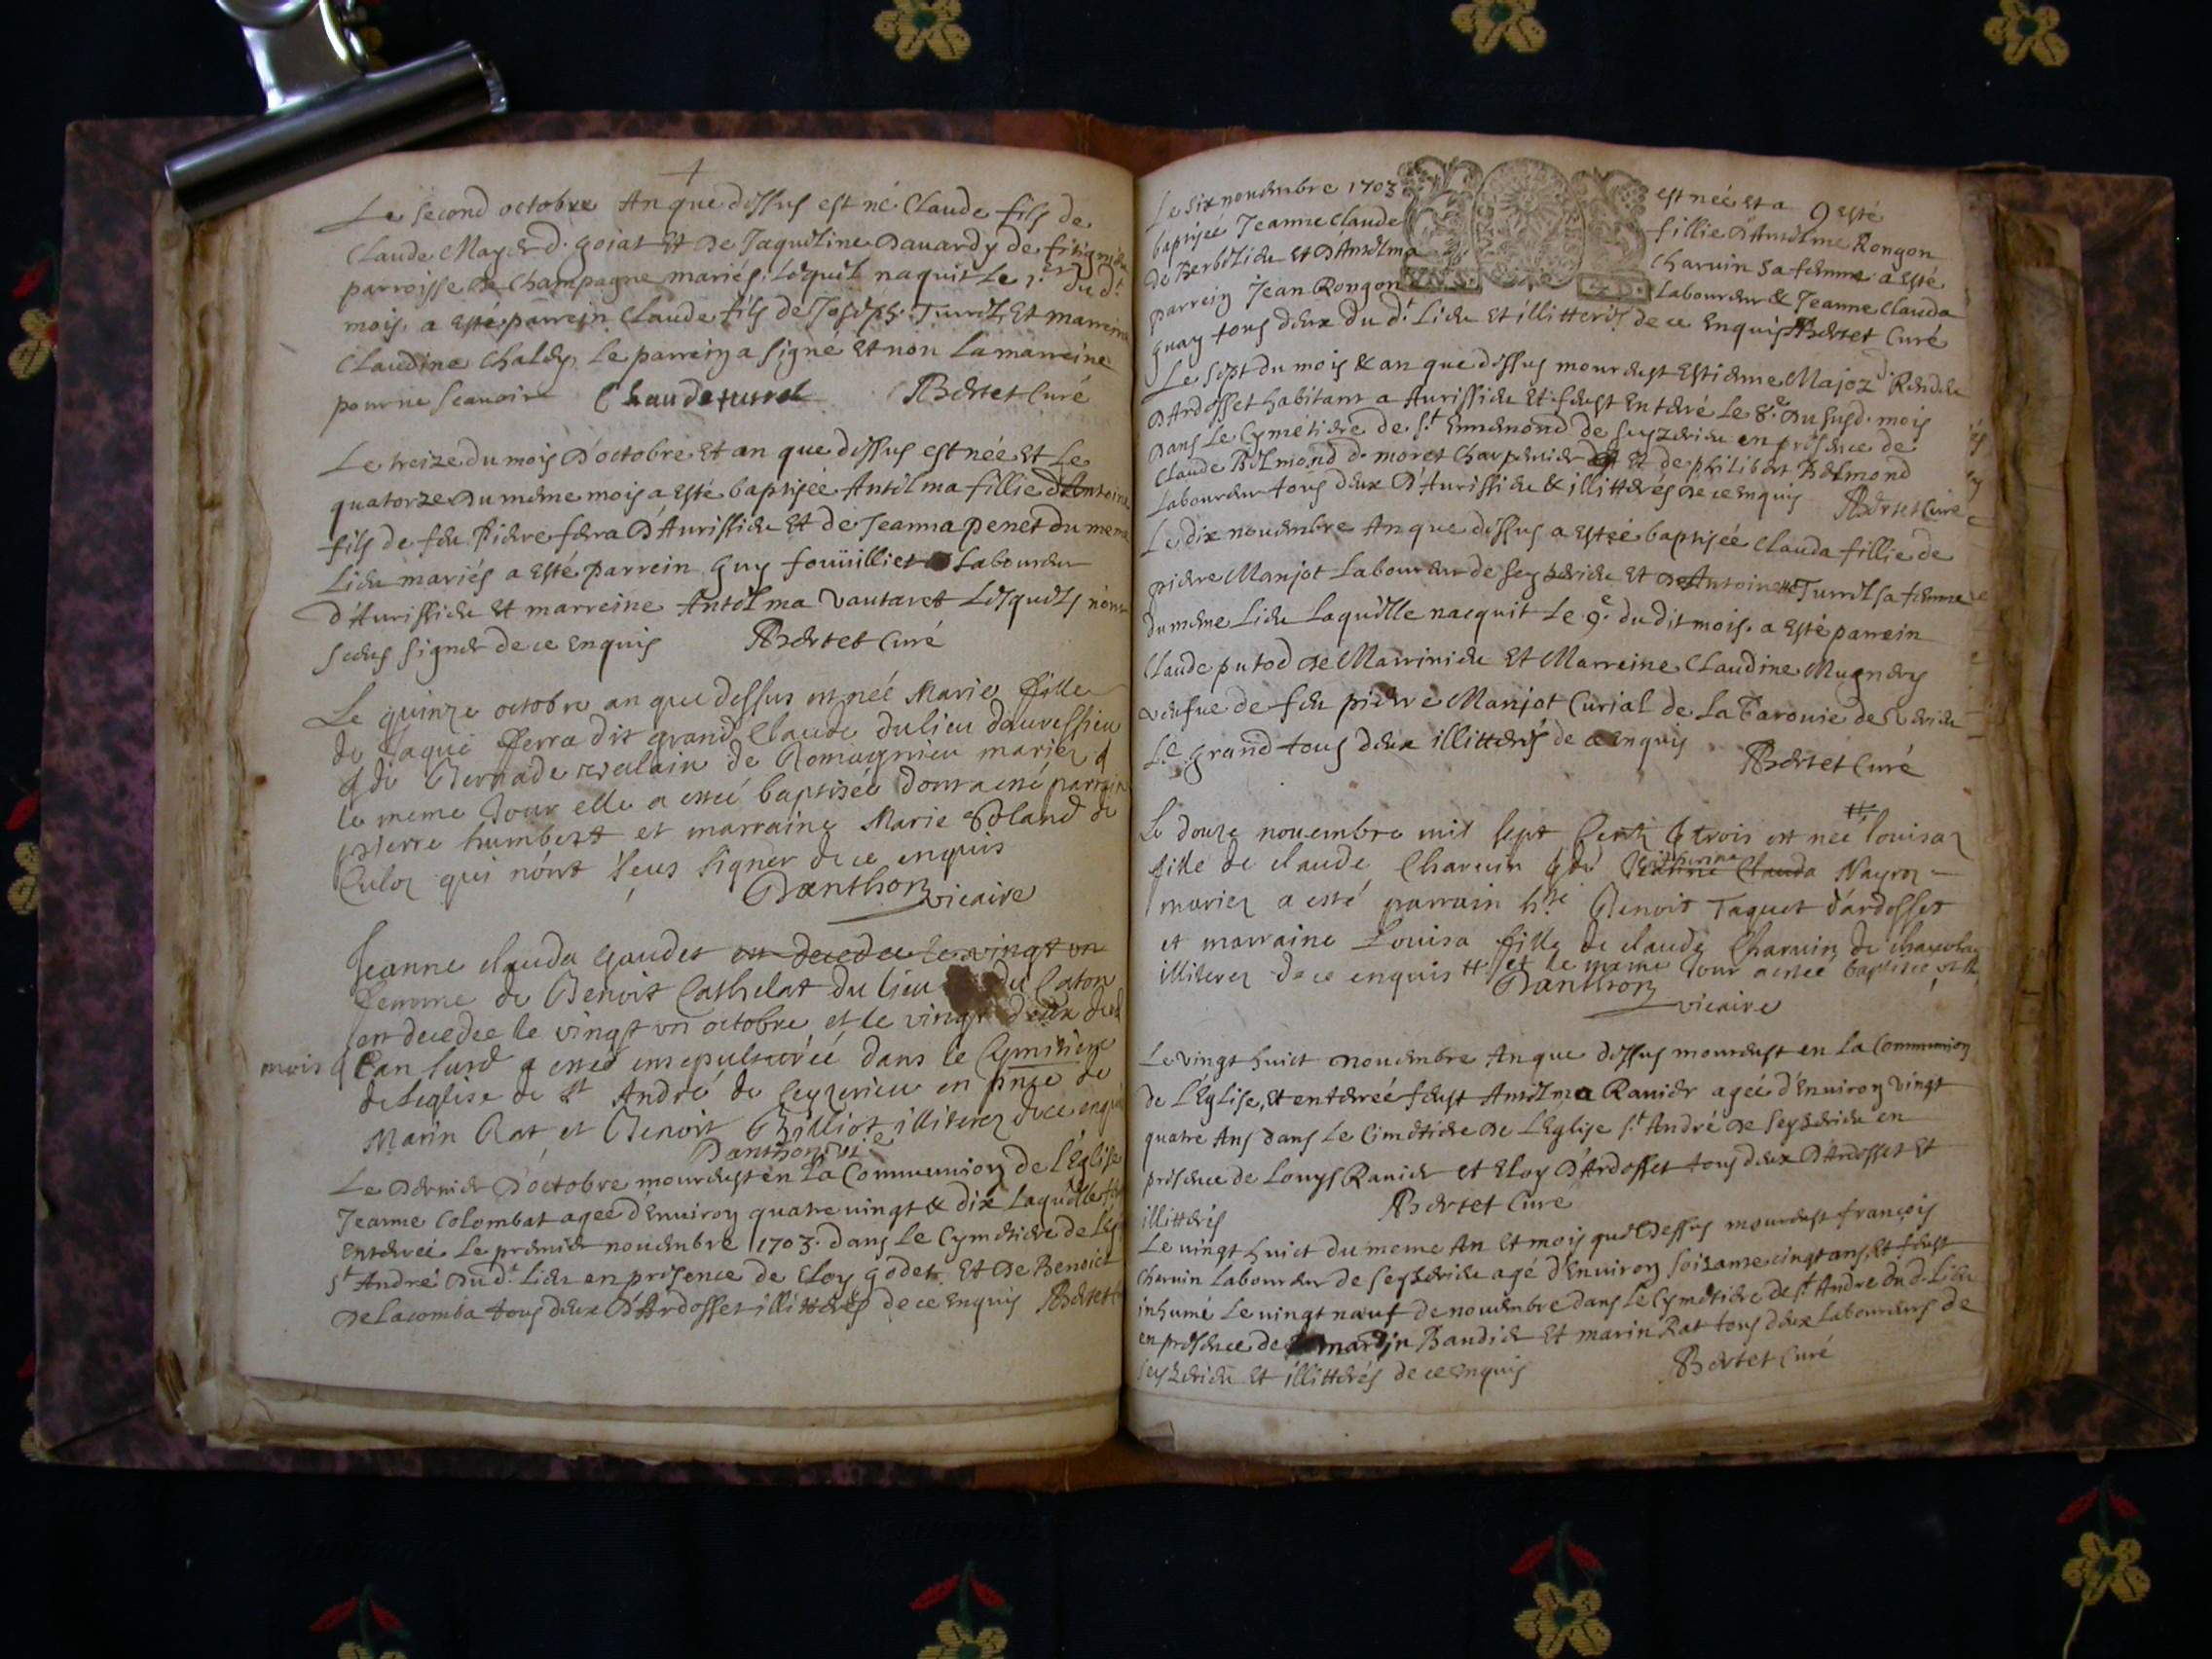 Le second octobre An que dessus est né Claude fils de
Claude Mayer d. gojat et de Jaqueline Dauardy de fitignieu
parroisse de Champagne mariés. lequel naquit le 1.er du d.t
mois. a esté parrein Claude fils de Joseph Turrel, et marreine
Claudine Chaley, le parrein a signé et non la marreine
pour ne scauoir Claude turrel Bertet Curé
Le treize du mois d'octobre et an que dessus est née et le
quatorze du meme mois a esté baptisée Antelma fillie d'Antoine
fils de feu Pierre ferra d'Aurissieu et de Jeanna penet du meme
lieu mariés a esté parrein Guy foüillier laboureur
d'Aurissieu et marreine Antelma Vautaret lesquels n'ont
sceus signer de ce enquis Bertet Curé
Le quinze octobre an que dessus est neé Marie fille
de Jaque fferra dit grand Claude du lieu dauressieu
& de Bernade de Romagnieu mariez &
le meme Jour elle a esteé baptisée dont a esté parrain
pierre humbert et marraine Marie Roland de
Culoz qui n'ont sceus signer de ce enquis
Danthon vicaire
Jeanne clauda gaudet est decedee le vingt un
femme de Benoit Cathelat du lieu du Caton
est decedee le vingt un octobre et le vingt deux dud
mois & an susd a esteé ensepulturéé dans le Cymitiere
de leglise de St André de Ceyzerieu en pnce de
Marin Rat et Benoit Billiot illiterez de ce enquis
Danthon vi.e
Le dernier d'octobre mourust en la Communion de l'Église
Jeanne Colombat agée d'enuiron quatre uingt & dix laquelle fut
enterrée le premier nouembre 1703. dans le Cymetiere de l'Egl
S.t André du d.t lieu en presence de Eloy godet et de Benoict
Delacomba tous deux d'Ardosset illitterés de ce enquis Bertet
Le six nouembre 1703 est née et a esté
baptisée Jeanne Claude fillie d'Antelme Rongon
de Berbelieu et d'Antelma Charuin sa femme a esté
parrein Jean Rongon laboureur & Jeanne Clauda
guay tous deux du d.t lieu et illitterés de ce enquis Bertet Curé
Le sept du mois & an que dessus mourust Estienne Majoz d.
d'Ardosset habitant a Aurissieu et feust enterré le 8.e du susd. mois
dans le Cymetiere de S.t Ennemond de Seyzerieu en presence de
Claude Belmond d. moret Charpentier et de philibert Belmond
laboureur tous deux d'Aurissieu & illitterés de ce enquis Bertet Curé
Le dix nouembre An que dessus a estée baptisée Clauda fillie de
pierre Manjot laboureur de Seyzerieu et de Antoinette Turrel sa femme
du meme lieu laquelle nacquit le 9.e du dit mois. a esté parrein
Claude putod de Marinieu et Marreine Claudine Mugnery
veufue de feu pierre Manjot Curial de la Baronie de
Le grand tous deux illitterés de ce enquis Bertet Curé
Le douze nouembre mil sept Cents & trois est neé louisaz
fille de claude Charuin & de Jeanne Clauda Nayroz
mariez a esté parrain h.te Benoit Jaquet d'ardosset
et marraine Louisa fille de claude Charuin de
illiterez de ce enquis et le meme Jour a esteé baptisée
Danthon
vicaire
Le vingt huict nouembre An que dessus mourust en la Communion
de l'Eglise, et enterreé feust Antelma Rauier ageé d'enuiron vingt
quatre Ans dans le Cimetiere de l'Eglise S.t André de Seyzerieu en
presence de Louys Rauier et Eloy d'Ardosset tous deux d'Ardosset et
illitterés Bertet Curé
Le uingt huict du meme An et mois que dessus mourust françois
Charuin laboureur de Seyzerieu agé d'enuiron soixante cinqt ans, et feust
inhumé le uingt nœuf de nouembre dans le Cymetiere de S.t Andre du d. lieu
en presence de martin Baudier et marin Rat tous deux laboureurs de
Seyzerieu et illitterés de ce enquis Bertet Curé